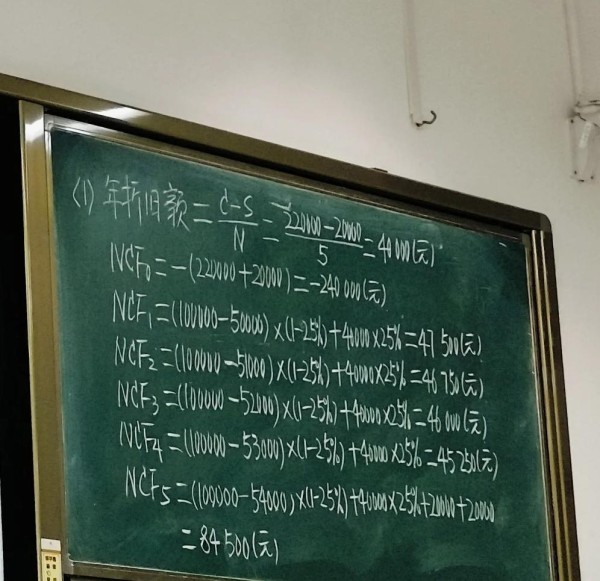 (1) 年折旧额 = (C-S)/N = (220000-20000)/5 = 40000(元)
NCF₀ = -(220000+20000) = -240000(元)
NCF₁ = (100000-50000)×(1-25%)+40000×25% = 47500(元)
NCF₂ = (100000-51000)×(1-25%)+40000×25% = 46750(元)
NCF₃ = (100000-52000)×(1-25%)+40000×25% = 46000(元)
NCF₄ = (100000-53000)×(1-25%)+40000×25% = 45250(元)
NCF₅ = (100000-54000)×(1-25%)+40000×25%+20000+20000
= 84500(元)